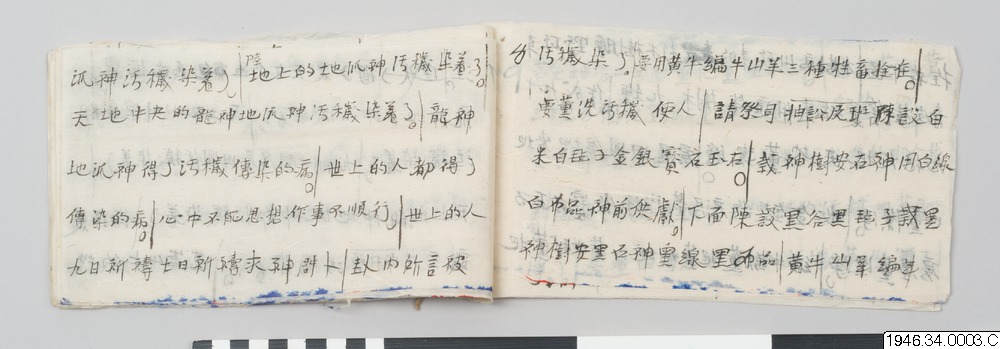 派神污穢染着了。陸地上的土地派神污穢染着了。
天地中央的龍神地派神污穢染着了。龍神
地派神得了污穢傳染的病。世上的人都得了
傳染的病。心中不能思想作事不順行。世上的人
九日祈禱七日祈禱求神群卜卦內所言被
污穢染了。要用黄牛编牛山羊三種牲畜拴在。
要薰洗污穢使人請祭司 陳設白
米白 子金銀寶石玉石。栽神樹安石神用白線
白布品神前供獻。下面陳設黑谷黑 子設黑
神樹安黑石神黑線黑布品黄牛山羊编牛
1946.34.0003.C